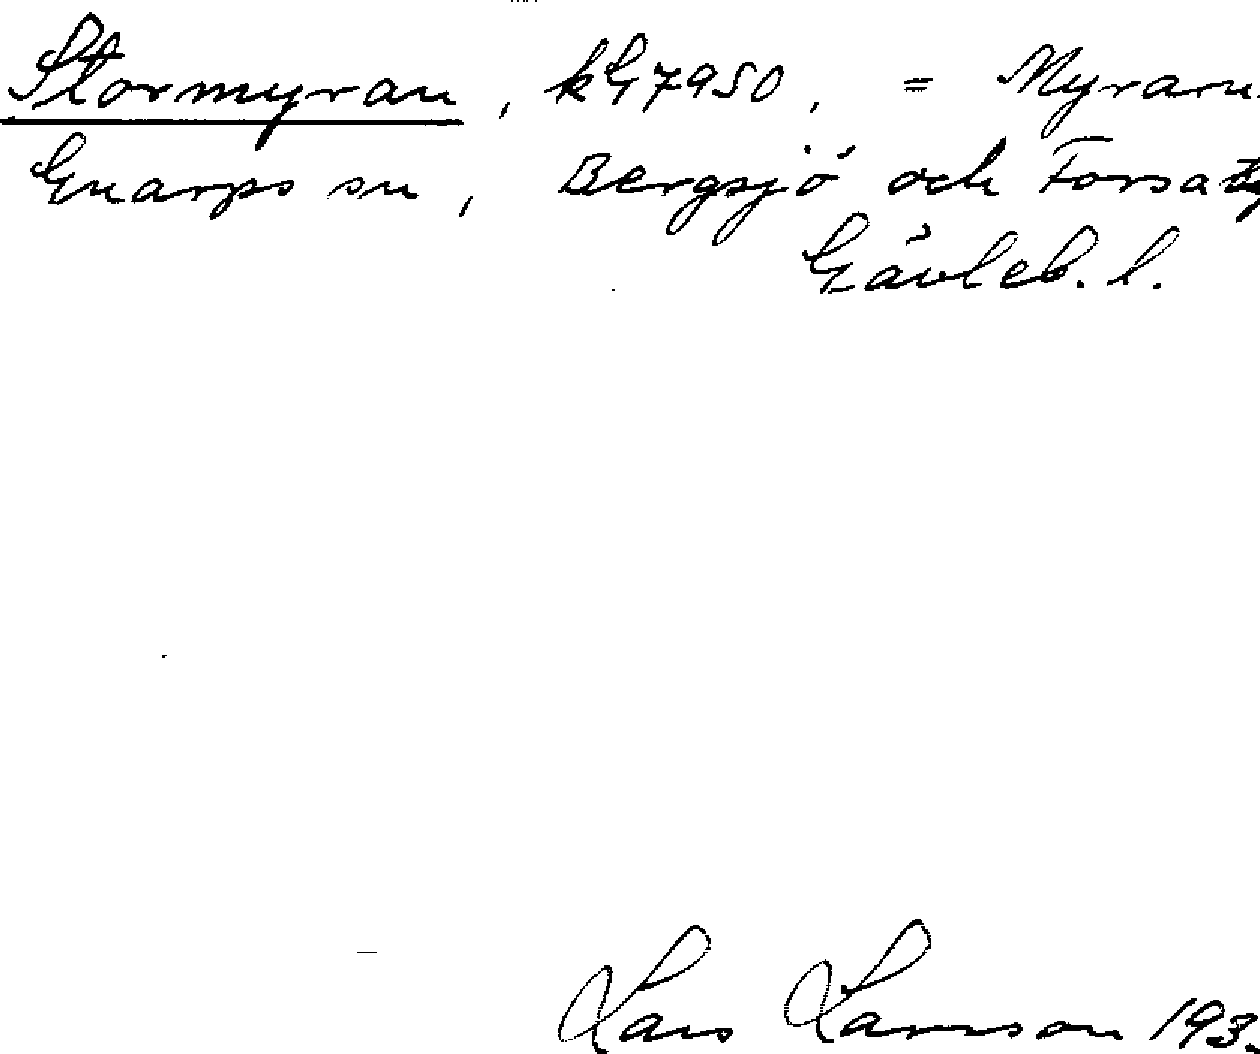 Stormyran, kG7950, = Myrarn
Gnarps sn, Bergsjö och Forsa
Gävleb. l.
Lars Larsson 193